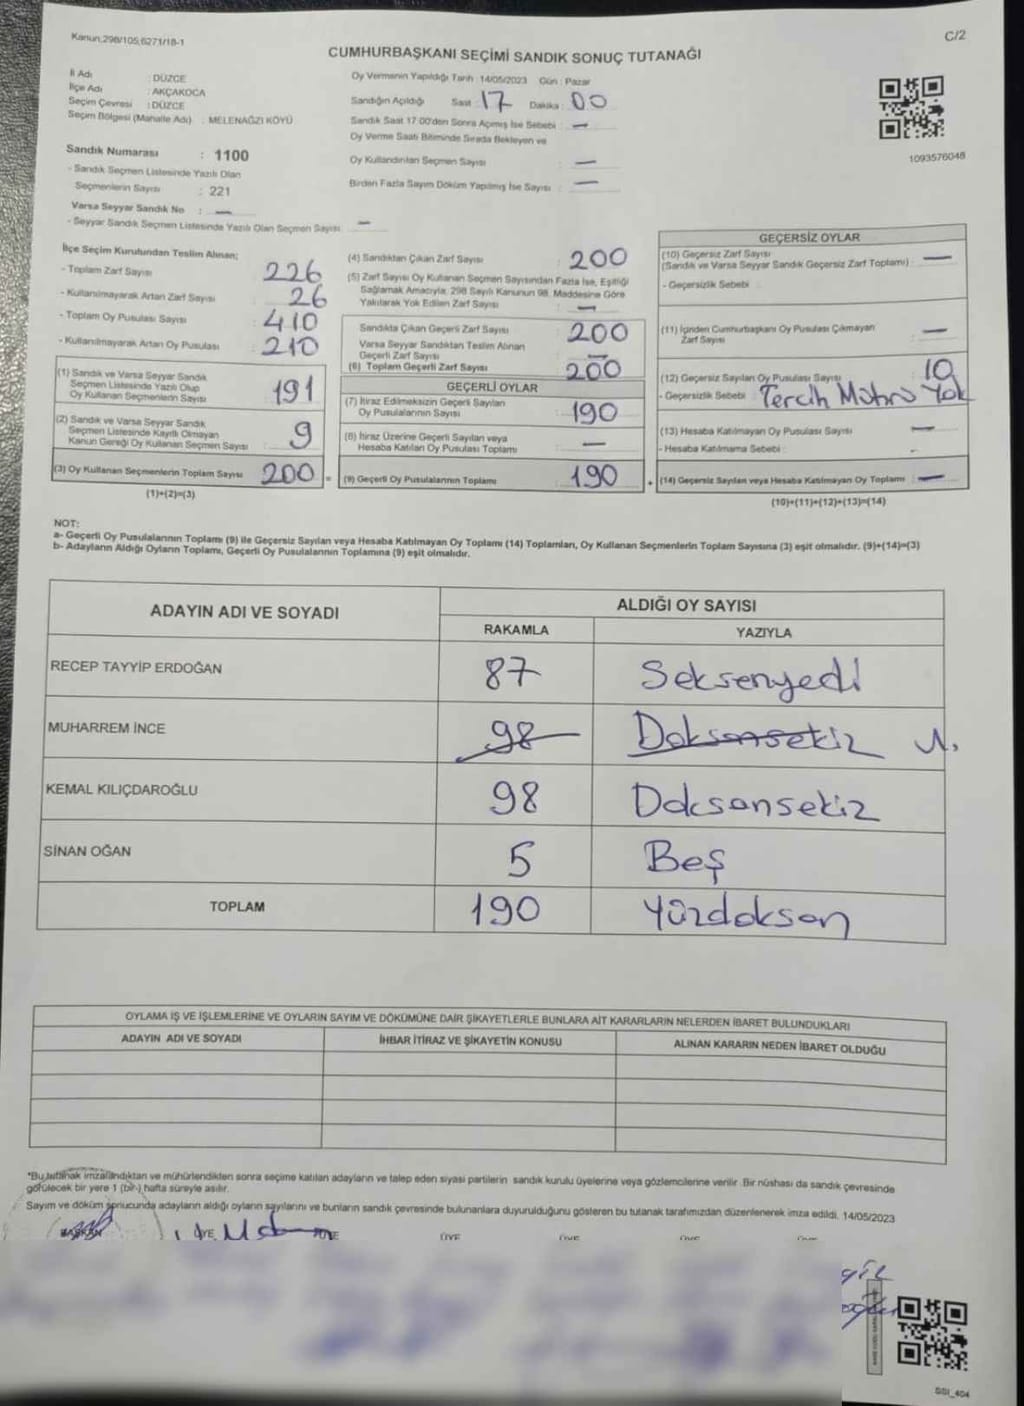 Kanun:298/105,6271/18-1
C/2
CUMHURBAŞKANI SEÇİMİ SANDIK SONUÇ TUTANAĞI
İl Adı : DÜZCE
İlçe Adı : AKÇAKOCA
Seçim Çevresi : DÜZCE
Seçim Bölgesi (Mahalle Adı) : MELENAĞZI KÖYÜ
Oy Vermenin Yapıldığı Tarih : 14/05/2023 Gün : Pazar
Sandığın Açıldığı Saat : 17 Dakika : 00
Sandık Saat 17:00'den Sonra Açılmış İse Sebebi : —
Oy Verme Saati Bitiminde Sırada Bekleyen ve
Oy Kullandırılan Seçmen Sayısı : —
Birden Fazla Sayım Döküm Yapılmış İse Sayısı : —
1093576048
Sandık Numarası : 1100
- Sandık Seçmen Listesinde Yazılı Olan
Seçmenlerin Sayısı : 221
Varsa Seyyar Sandık No : —
- Seyyar Sandık Seçmen Listesinde Yazılı Olan Seçmen Sayısı : —
İlçe Seçim Kurulundan Teslim Alınan;
- Toplam Zarf Sayısı : 226
- Kullanılmayarak Artan Zarf Sayısı : 26
- Toplam Oy Pusulası Sayısı : 410
- Kullanılmayarak Artan Oy Pusulası : 210
(1) Sandık ve Varsa Seyyar Sandık
Seçmen Listesinde Yazılı Olup
Oy Kullanan Seçmenlerin Sayısı : 191
(2) Sandık ve Varsa Seyyar Sandık
Seçmen Listesinde Kayıtlı Olmayan
Kanun Gereği Oy Kullanan Seçmen Sayısı : 9
(3) Oy Kullanan Seçmenlerin Toplam Sayısı : 200
(1)+(2)=(3)
(4) Sandıktan Çıkan Zarf Sayısı : 200
(5) Zarf Sayısı Oy Kullanan Seçmen Sayısından Fazla İse, Eşitliği
Sağlamak Amacıyla, 298 Sayılı Kanunun 98. Maddesine Göre
Yakılarak Yok Edilen Zarf Sayısı : —
Sandıkta Çıkan Geçerli Zarf Sayısı : 200
Varsa Seyyar Sandıktan Teslim Alınan
Geçerli Zarf Sayısı : —
(6) Toplam Geçerli Zarf Sayısı : 200
GEÇERLİ OYLAR
(7) İtiraz Edilmeksizin Geçerli Sayılan
Oy Pusulalarının Sayısı : 190
(8) İtiraz Üzerine Geçerli Sayılan veya
Hesaba Katılan Oy Pusulası Toplamı : —
(9) Geçerli Oy Pusulalarının Toplamı : 190
GEÇERSİZ OYLAR
(10) Geçersiz Zarf Sayısı
(Sandık ve Varsa Seyyar Sandık Geçersiz Zarf Toplamı) : —
- Geçersizlik Sebebi :
(11) İçinden Cumhurbaşkanı Oy Pusulası Çıkmayan
Zarf Sayısı : —
(12) Geçersiz Sayılan Oy Pusulası Sayısı : 10
- Geçersizlik Sebebi : Tercih Mührü Yok
(13) Hesaba Katılmayan Oy Pusulası Sayısı : —
- Hesaba Katılmama Sebebi :
(14) Geçersiz Sayılan veya Hesaba Katılmayan Oy Toplamı : —
(10)+(11)+(12)+(13)=(14)
NOT:
a- Geçerli Oy Pusulalarının Toplamı (9) ile Geçersiz Sayılan veya Hesaba Katılmayan Oy Toplamı (14) Toplamları, Oy Kullanan Seçmenlerin Toplam Sayısına (3) eşit olmalıdır. (9)+(14)=(3)
b- Adayların Aldığı Oyların Toplamı, Geçerli Oy Pusulalarının Toplamına (9) eşit olmalıdır.
ADAYIN ADI VE SOYADI
ALDIĞI OY SAYISI
RAKAMLA YAZIYLA
RECEP TAYYİP ERDOĞAN 87 Seksenyedi
MUHARREM İNCE 98 Doksansekiz
KEMAL KILIÇDAROĞLU 98 Doksansekiz
SİNAN OĞAN 5 Beş
TOPLAM 190 Yüzdoksan
OYLAMA İŞ VE İŞLEMLERİNE VE OYLARIN SAYIM VE DÖKÜMÜNE DAİR ŞİKAYETLERLE BUNLARA AİT KARARLARIN NELERDEN İBARET BULUNDUKLARI
ADAYIN ADI VE SOYADI İHBAR İTİRAZ VE ŞİKAYETİN KONUSU ALINAN KARARIN NEDEN İBARET OLDUĞU
*Bu tutanak imzalandıktan ve mühürlendikten sonra seçime katılan adayların ve talep eden siyasi partilerin sandık kurulu üyelerine veya gözlemcilerine verilir. Bir nüshası da sandık çevresinde
görülecek bir yere 1 (bir) hafta süreyle asılır.
Sayım ve döküm sonucunda adayların aldığı oyların sayılarını ve bunların sandık çevresinde bulunanlara duyurulduğunu gösteren bu tutanak tarafımızdan düzenlenerek imza edildi. 14/05/2023
BAŞKAN ÜYE ÜYE ÜYE ÜYE ÜYE
SSI_404